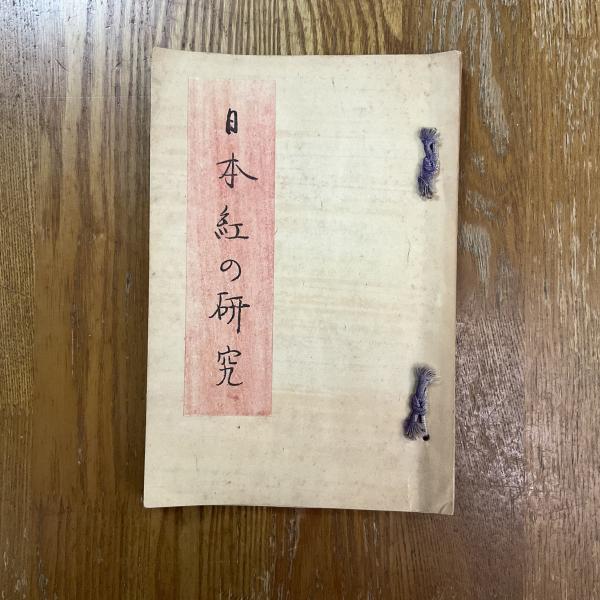 日本紅の研究